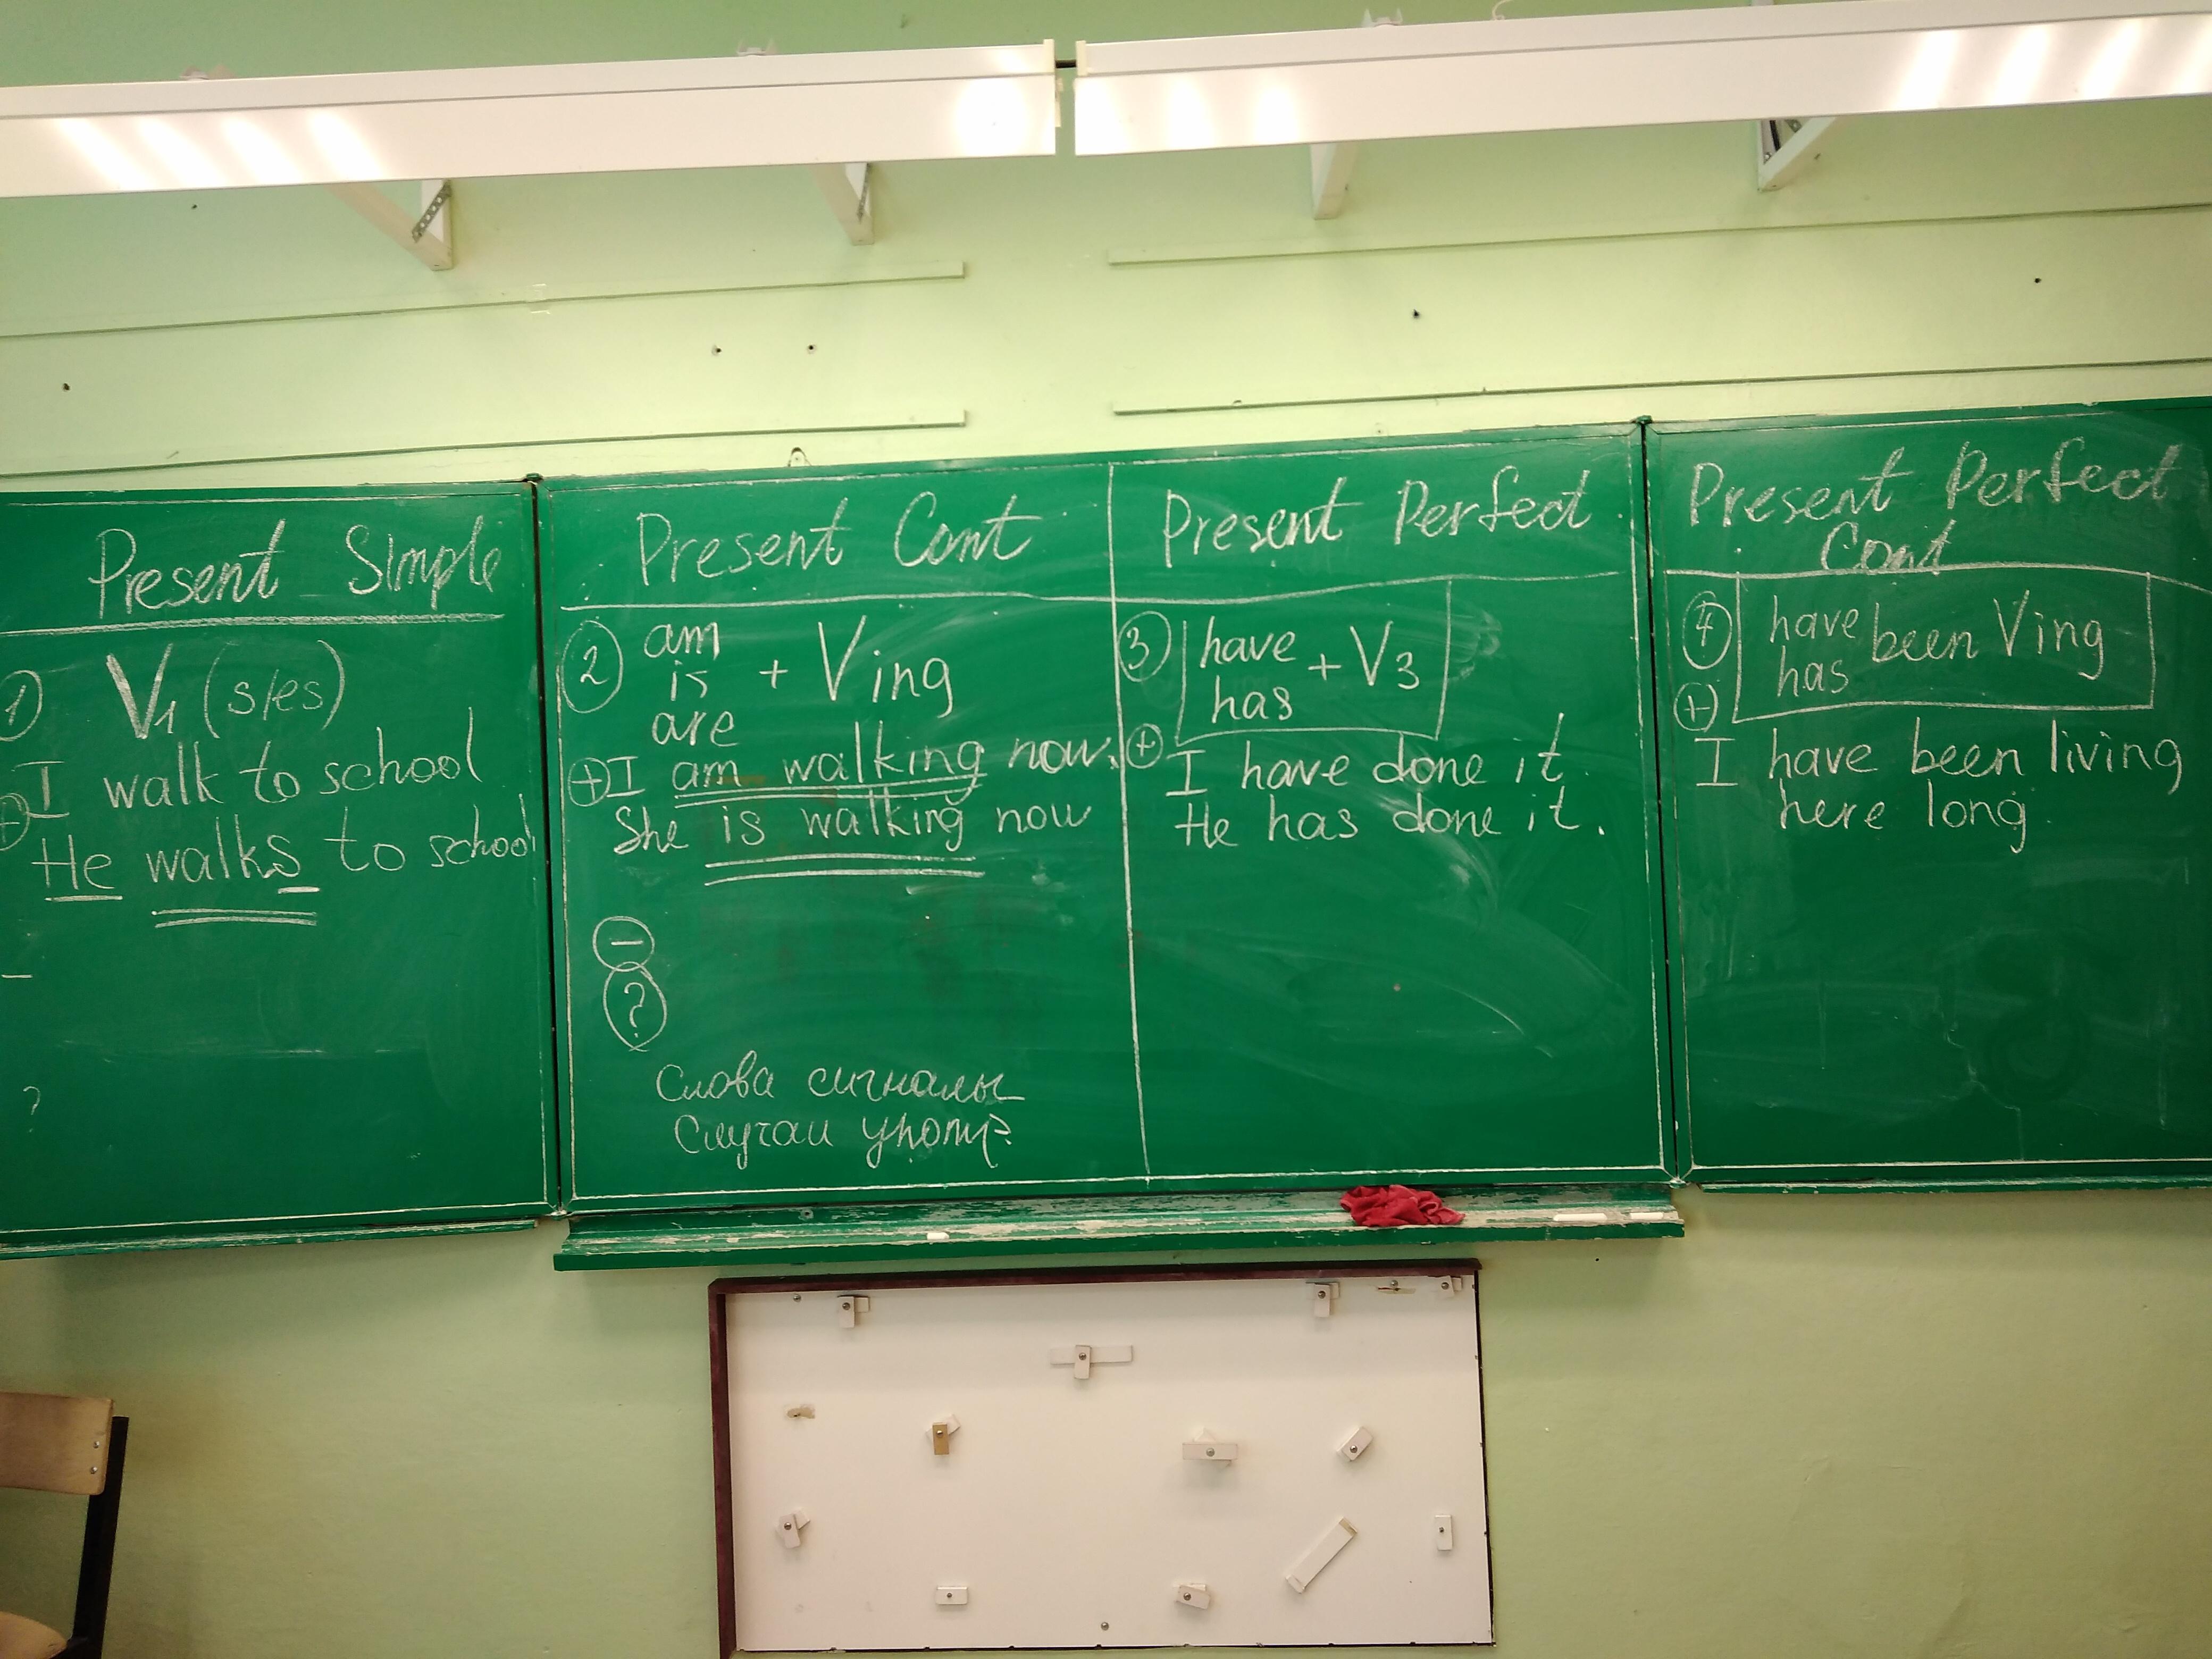 Present Simple
1) V1 (s/es)
I walk to school
+
He walks to school
–
?
Present Cont
2 am
is + Ving
are
+ I am walking now.
She is walking now
–
?
Слова сигналы
Случаи употр?
Present Perfect
3 have
has + V3
+
I have done it.
He has done it.
Present Perfect
Cont
4 have
has been Ving
+
I have been living
here long.